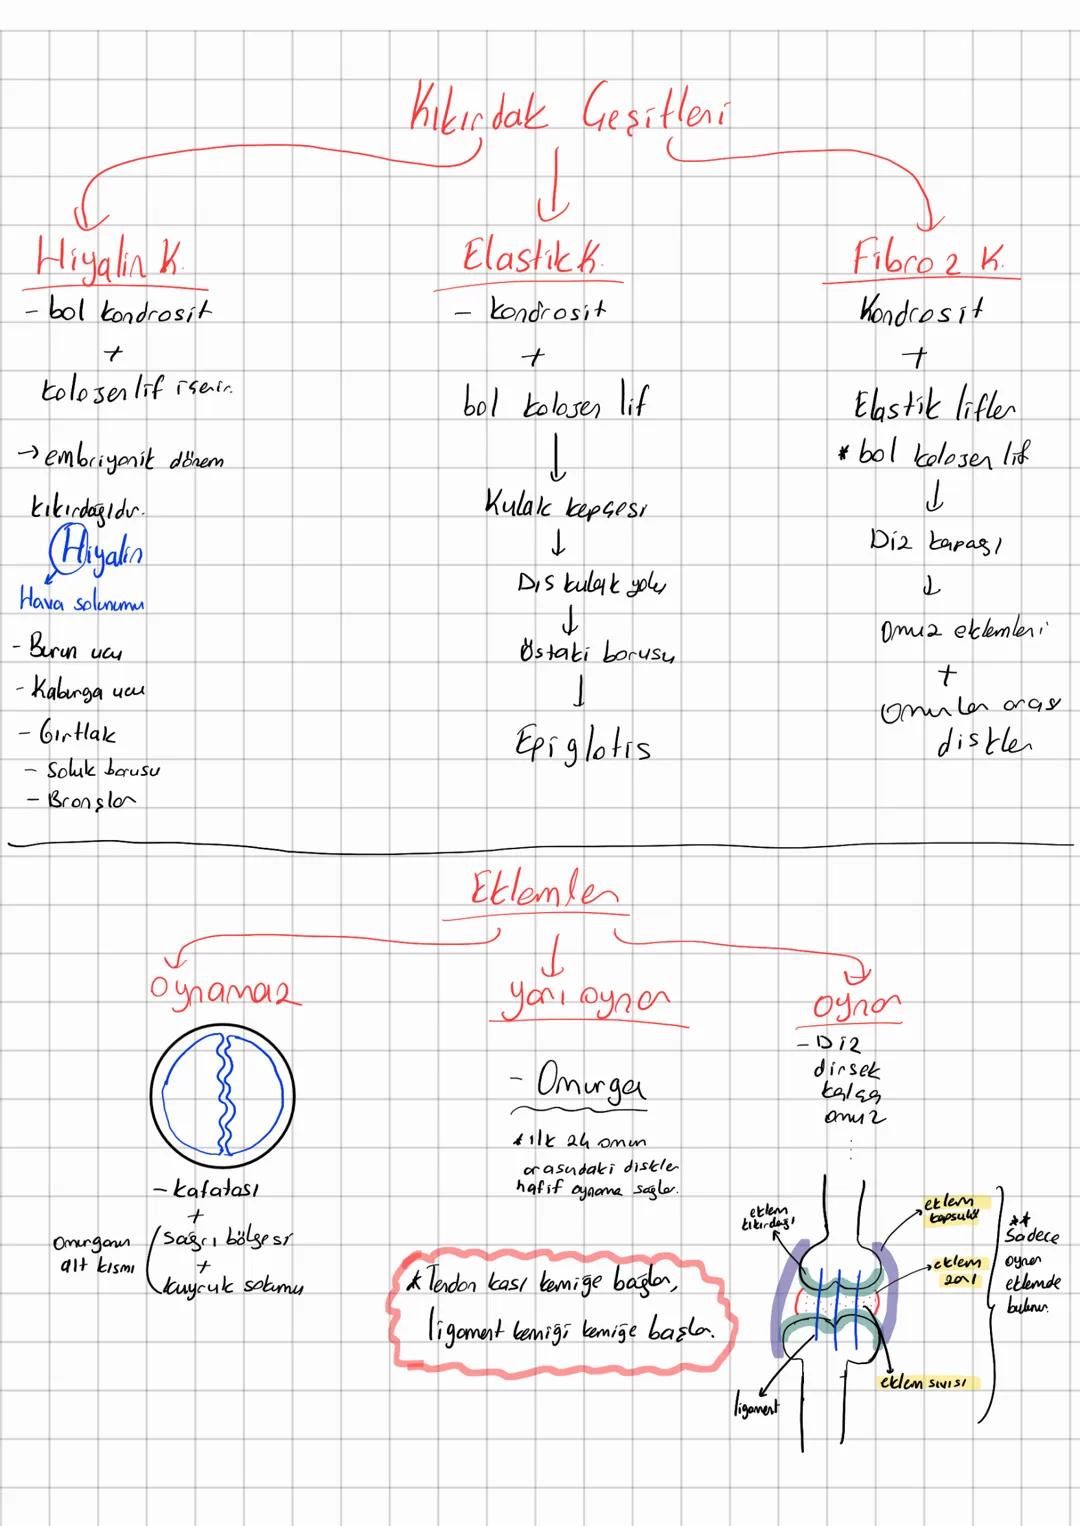 Kıkırdak Çeşitleri
Hiyalin K.
- bol kondrosit
+
kolojen lif içerir.
→ embriyonik dönem
kıkırdağıdır.
Hiyalin
Hava solunumu
- Burun ucu
- Kaburga ucu
- Gırtlak
- Soluk borusu
- Bronşlar
Elastik K.
- kondrosit
+
bol kolojen lif
Kulak kepçesi
Dış kulak yolu
Östaki borusu
Epiglotis
Fibroz K.
Kondrosit
+
Elastik lifler
* bol kolojen lif
Diz kapağı
Omuz eklemleri
+
Omurlar arası
diskler
Eklemler
Oynamaz
- kafatası
+
Omurganın
alt kısmı
sağrı bölgesi
+
kuyruk sokumu
yarı oynar
- Omurga
* ilk 24 omur
arasındaki diskler
hafif oynama sağlar.
* Tendon kası kemiğe bağlar,
ligament kemiği kemiğe bağlar.
oynar
- Diz
dirsek
kalça
omuz
eklem
kıkırdağı
eklem
kapsülü
eklem
zarı
eklem sıvısı
ligament
**
Sadece
oynar
eklemde
bulunur.